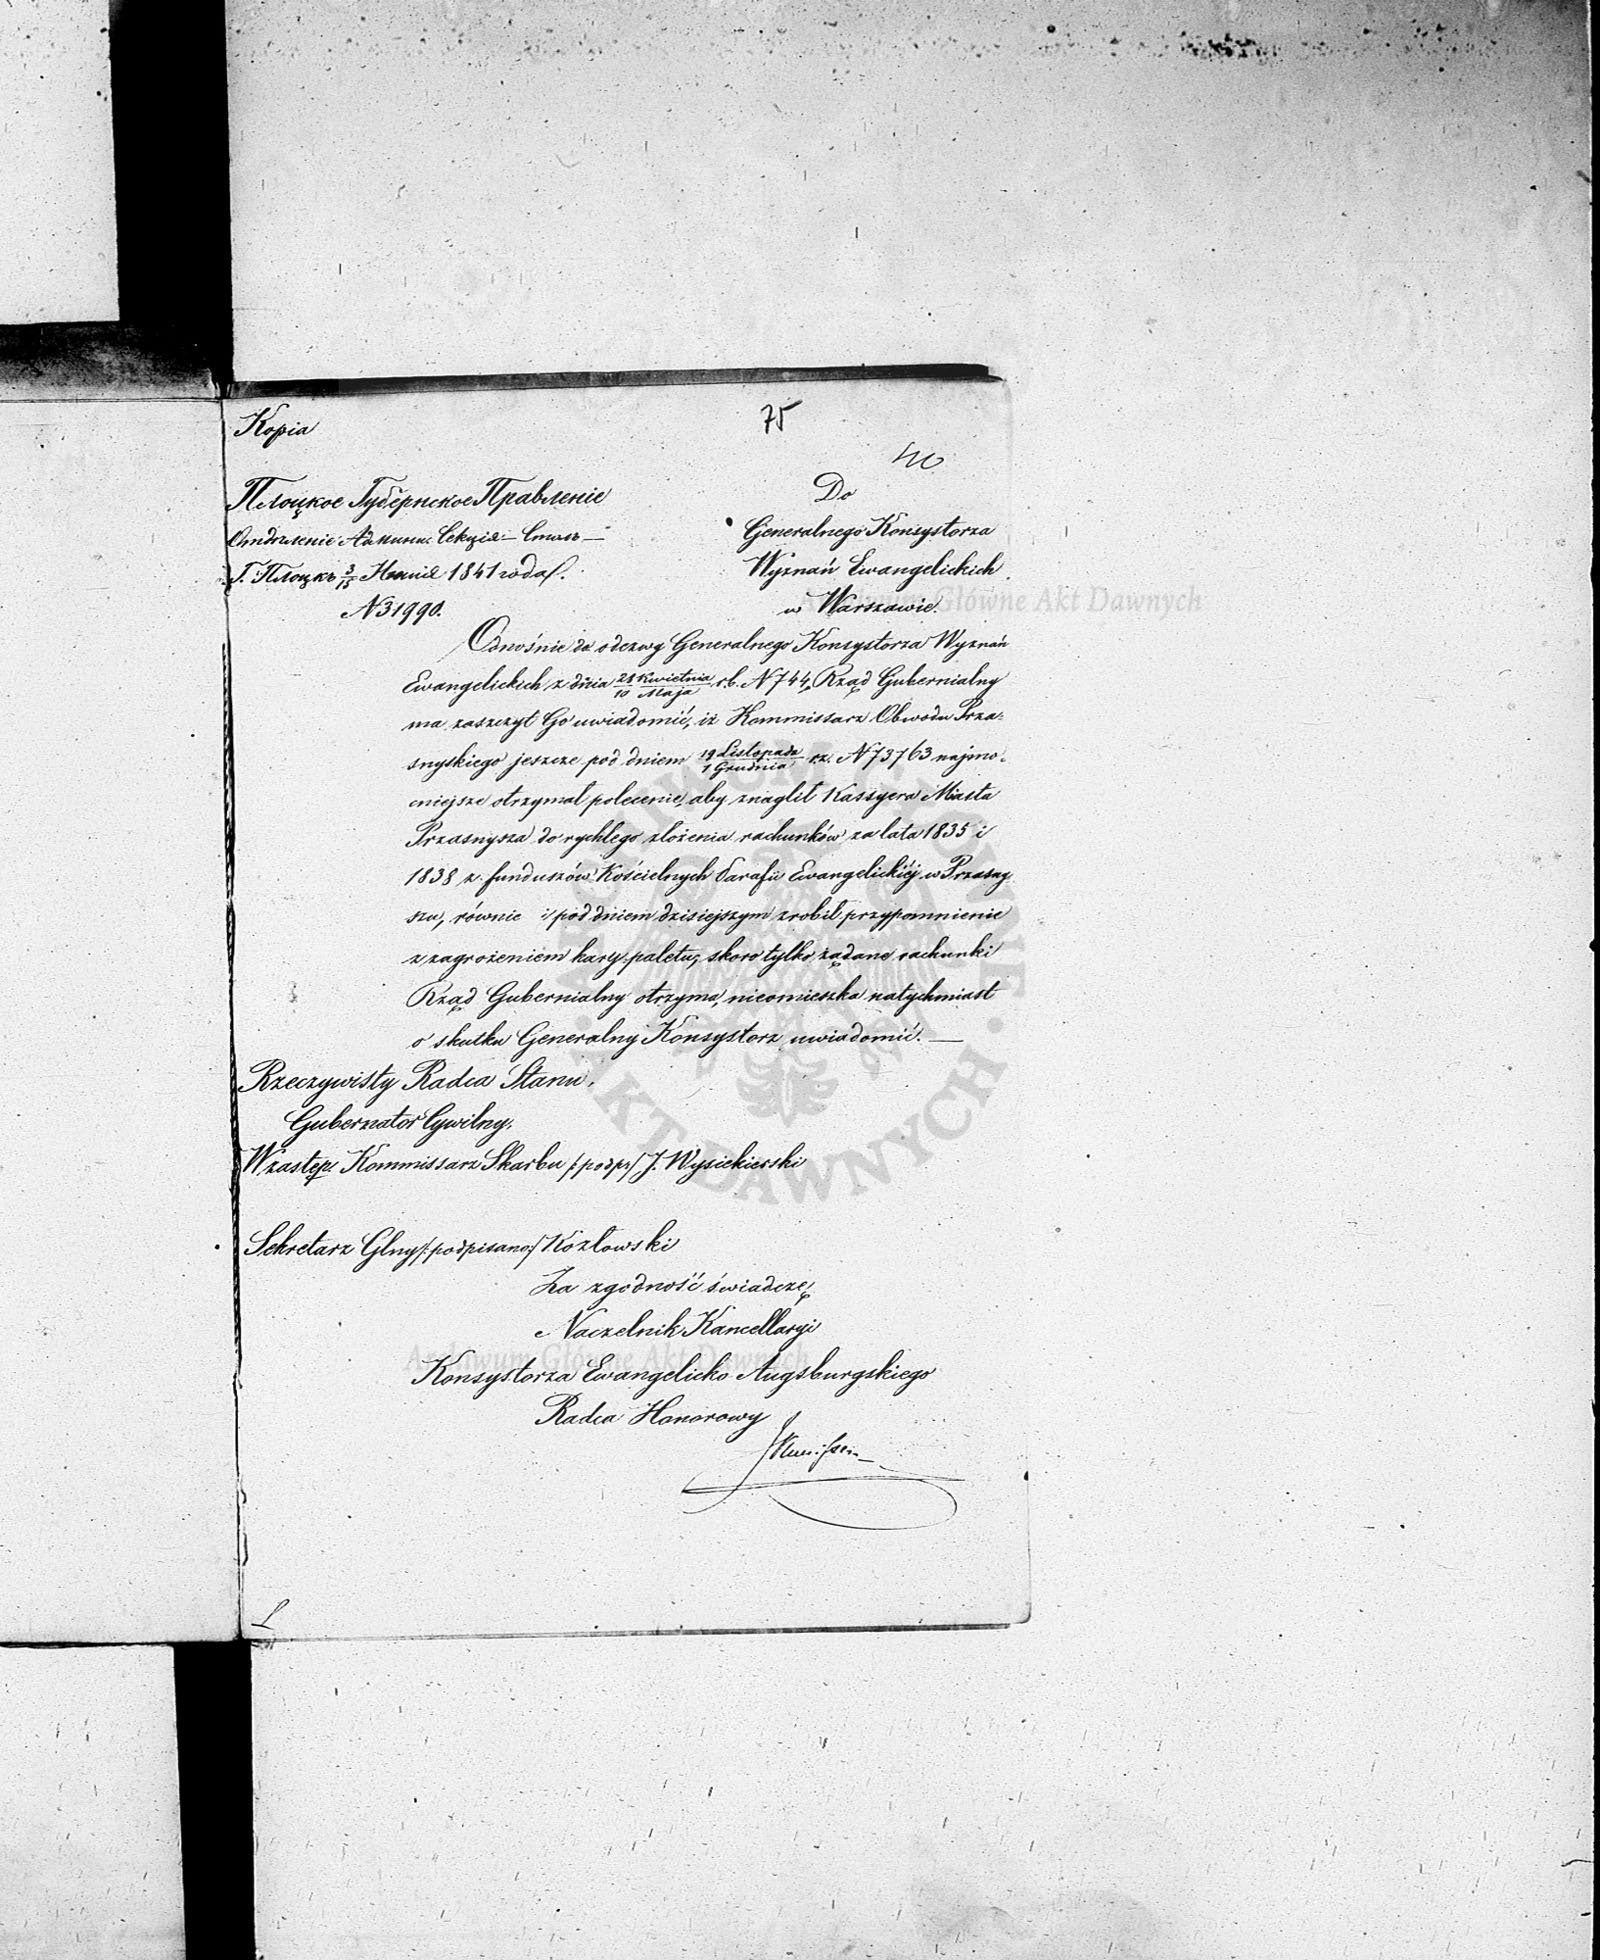 Kopia
75
40
Плоцкое Губернское Правленіе
Отдѣленіе Админи: Секція — Столъ —
Г. Плоцкъ 3/15 1841 года.
N 31990.
Do
Generalnego Konsystorza
Wyznań Ewangelickich
w Warszawie.
Odnośnie do odezwy Generalnego Konsystorza Wyznań
Ewangelickich z dnia 28 Kwietnia/10 Maja r.b. N 744, Rząd Gubernialny
ma zaszczyt Go uwiadomić, iż Kommissarz Obwodu Prza-
snyskiego jeszcze pod dniem 19 Listopada/1 Grudnia r.z. N 73763 najmo-
cniejsze otrzymał polecenie, aby znaglił Kassyera Miasta
Przasnysza do rychłego złożenia rachunków za lata 1835 i
1838 z funduszów Kościelnych Parafii Ewangelickiéj w Przasny-
szu, równie i pod dniem dzisiejszym zrobił przypomnienie
z zagrożeniem kary, skoro tylko żądane rachunki
Rząd Gubernialny otrzyma, nieomieszka natychmiast
o skutku Generalny Konsystorz uwiadomić. —
Rzeczywisty Radca Stanu,
Gubernator Cywilny.
W zastęp: Kommissarz Skarbu /:podp:/ J. Wysiekierski
Sekretarz Glny /:podpisano:/ Kozłowski
Za zgodność świadczę
Naczelnik Kancellaryi
Konsystorza Ewangelicko-Augsburgskiego
Radca Honorowy
Archiwum Główne Akt Dawnych
Archiwum Główne Akt Dawnych
AKT DAWNYCH